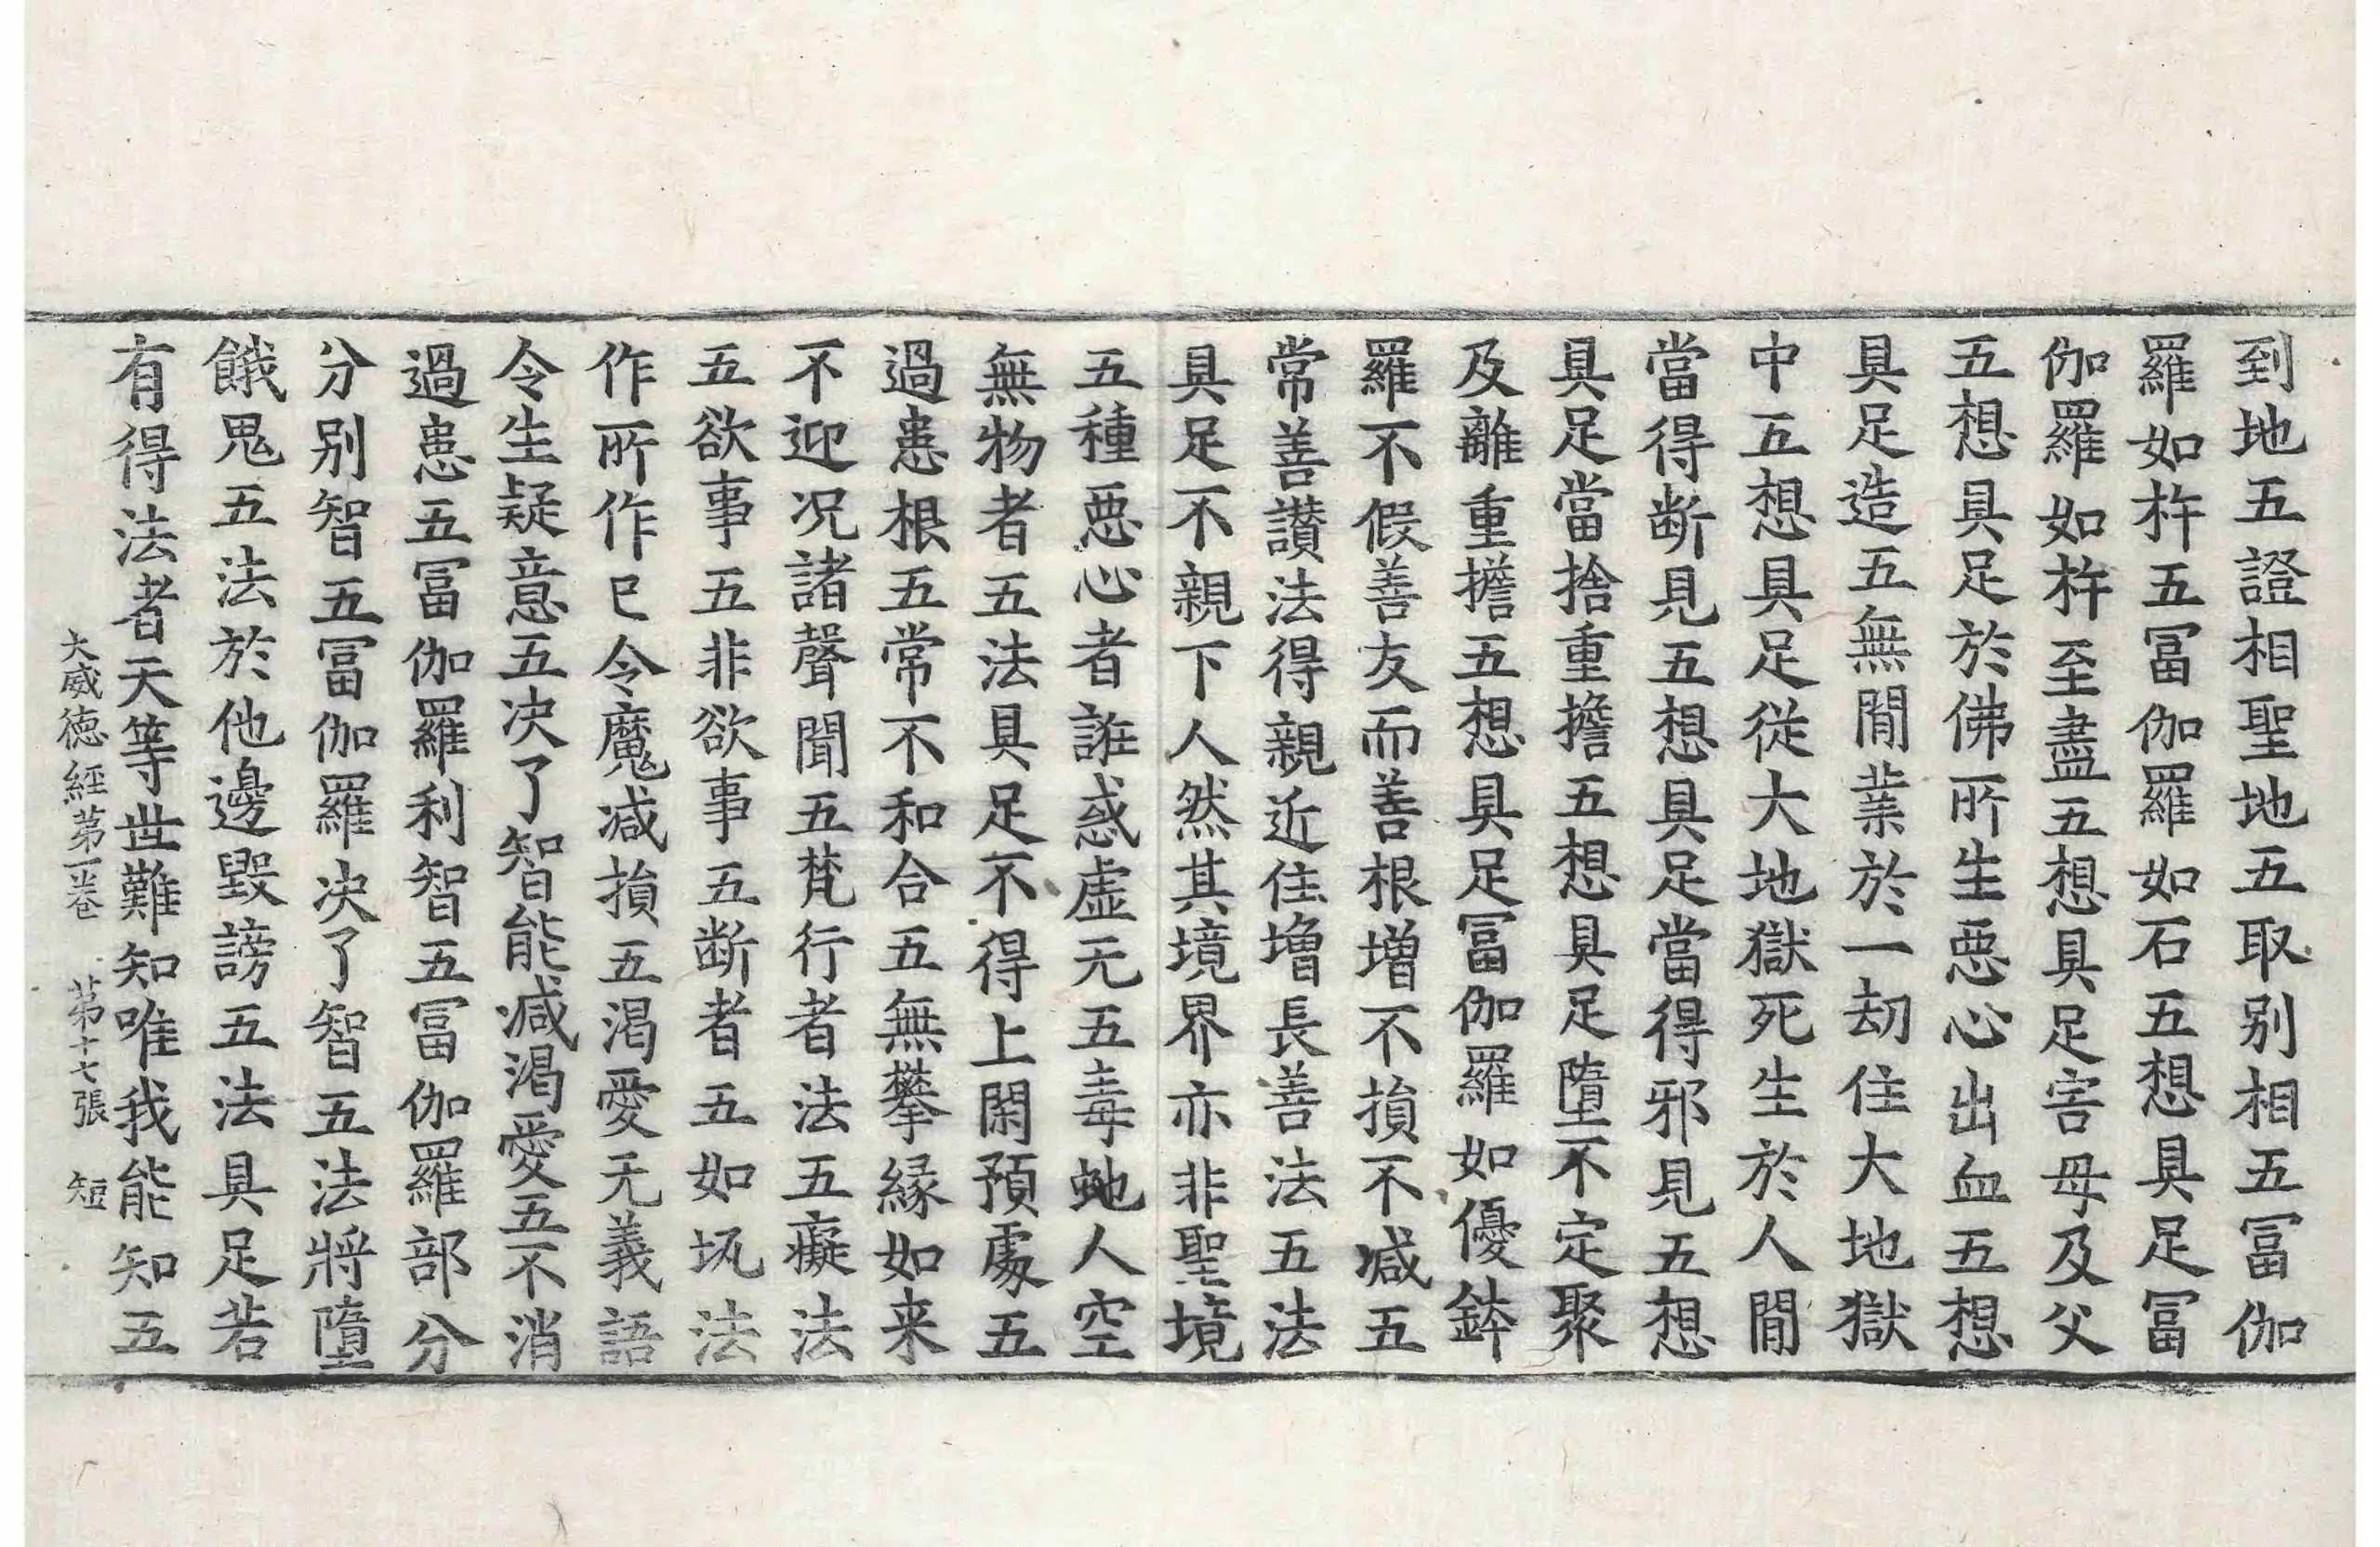 到地五證相聖地五取别相五冨伽
羅如杵五冨伽羅如石五想具足冨
伽羅如杵至盡五想具足害母及父
五想具足於佛所生惡心出血五想
具足造五無閒業於一劫住大地獄
中五想具足從大地獄死生於人閒
當得断見五想具足當得邪見五想
具足當捨重擔五想具足墮不定聚
及離重擔五想具足冨伽羅如優鉢
羅不假善友而善根增不損不减五
常善讃法得親近住增長善法五法
具足不親下人然其境界亦非聖境
五種惡心者誑惑虛无五毒虵人空
無物者五法具足不得上閑預處五
過患根五常不和合五無攀縁如来
不迎况諸聲聞五梵行者法五癡法
五欲事五非欲事五断者五如坑法
作所作已令魔减損五渴愛无義語
令生疑意五决了智能减渴愛五不消
過患五冨伽羅利智五冨伽羅部分
分别智五冨伽羅决了智五法將墮
餓鬼五法於他邊毀謗五法具足若
有得法者天等世難知唯我能知五
大威德經第一卷 第十七張 短